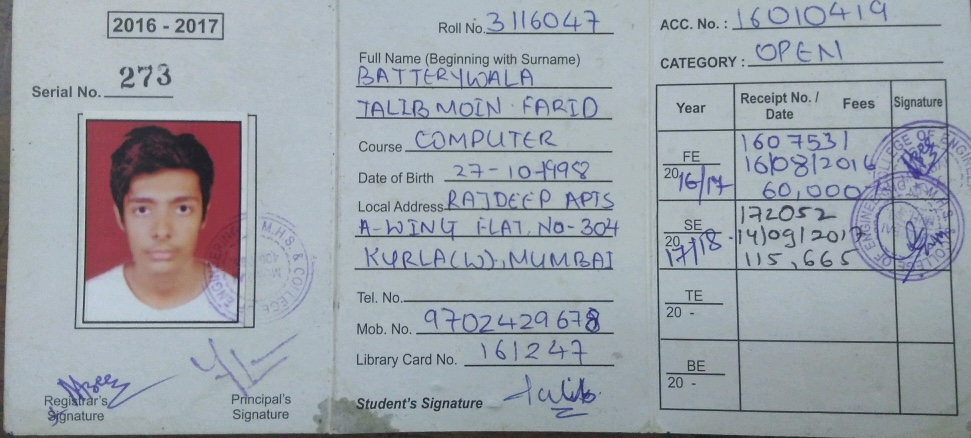 2016 - 2017
Serial No. 273
Registrar's Signature
Principal's Signature
Roll No. 3116047
Full Name (Beginning with Surname)
BATTERYWALA
TALIB MOIN FARID
Course COMPUTER
Date of Birth 27-10-1998
Local Address RAJDEEP APTS
A-WING FLAT. NO-304
KURLA(W), MUMBAI
Tel. No.
Mob. No. 9702429678
Library Card No. 161247
Student's Signature Talib
ACC. No. : 16010419
CATEGORY : OPEN
Year Receipt No. / Date Fees Signature
FE 1607531
2016/17 16/08/2016
60,000/-
SE 172052
2017/18 14/09/2017
115,665
TE
20 -
BE
20 -